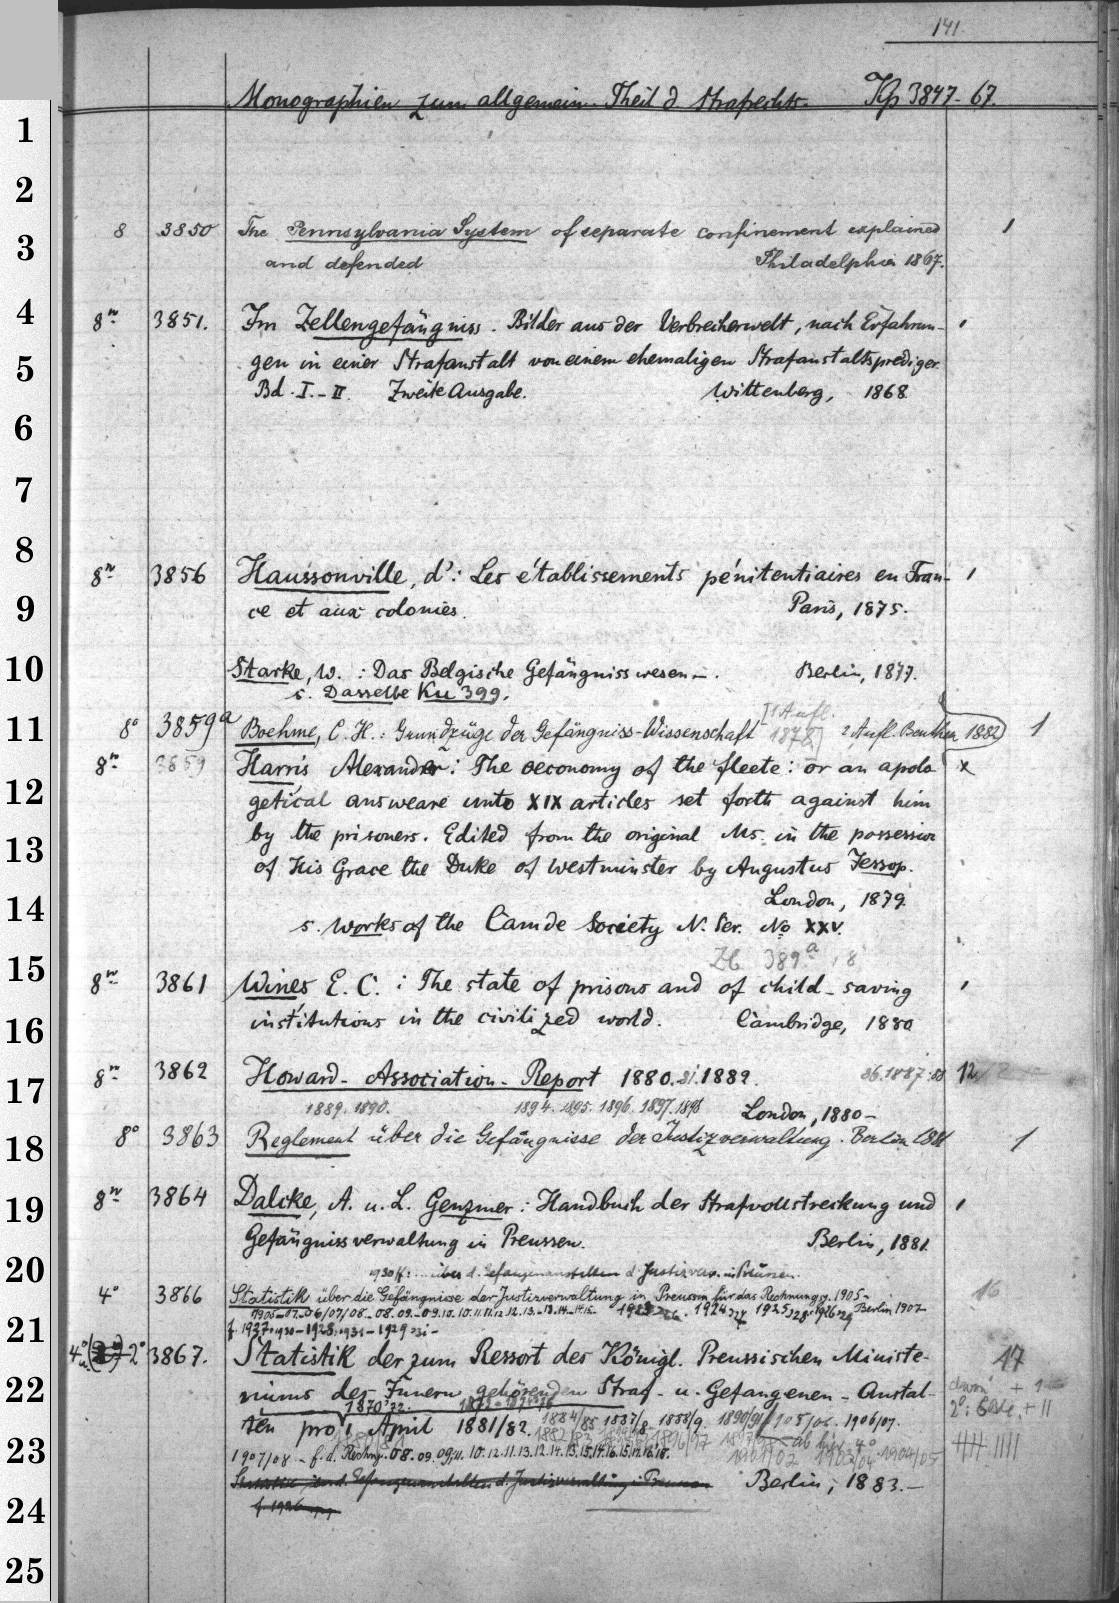 141.
Monographien zum allgemein. Theil d Strafrechts. Kp 3847-67.
1
2
8 3850 The Pennsylvania System of separate confinement explained 1
3
and defended Philadelphia 1867.
4
8° 3851. Im Zellengefängniss. Bilder aus der Verbrecherwelt, nach Erfahrun-
5
gen in einer Strafanstalt von einem ehemaligen Strafanstaltsprediger.
Bd. I.-II. Zweite Ausgabe. Wittenberg, 1868
6
7
8
8° 3856 Haussonville, d': Les établissements pénitentiaires en Fran-
9
ce et aux colonies. Paris, 1875.
10
Starke, W.: Das Belgische Gefängnisswesen. Berlin, 1877.
s. Dasselbe Ku 399.
[1 Aufl.
11
8° 3859a Boehme, C. H.: Grundzüge der Gefängniss-Wissenschaft 1878] 2. Aufl. Beuthen 1882 1
8° 3859 Harris Alexander: The oeconomy of the fleete: or an apolo x
12
getical answeare unto XIX articles set forth against him
by the prisoners. Edited from the original Ms. in the possession
13
of His Grace the Duke of Westminster by Augustus Jessop.
London, 1879.
14
s. Works of the Camde Society N. Ser. No XXV.
Zc 389a, 8
15
8° 3861 Wines E. C.: The state of prisons and of child-saving
16
institutions in the civilized world. Cambridge, 1880
8° 3862 Howard-Association-Report 1880.81.1882. 86.1887.88 12
17
1889. 1890. 1894. 1895. 1896. 1897. 1898 London, 1880-
18
8° 3863 Reglement über die Gefängnisse der Justizverwaltung. Berlin 1881 1
19
8° 3864 Dalcke, A. u. L. Genzmer: Handbuch der Strafvollstreckung und
Gefängnissverwaltung in Preussen. Berlin, 1881.
20
1930 ff: ... über d. Gefangenanstalten d. Justizverw. in Preussen.
4° 3866 Statistik über die Gefängnisse der Justizverwaltung in Preussen für das Rechnungsj. 1905- 16
1905-07.-06/07/08.-08.09.-09.10. 10.11. 11.12. 12.13.-13.14.-14.15. Berlin 1907-
21
4° 2° 3867. Statistik der zum Ressort des Königl. Preussischen Ministe- 17
22
riums des Innern gehörenden Straf- u. Gefangenen-Anstal- davon + 1
1870 2°: + 11
ten pro 1 April 1881/82. 1884/85 1887/8 1888/9. 1890/91 1905/06. 1906/07.
23
ab hier 4°
1907/08 - f. d. Rechng. 08.09. 09.
Berlin, 1883.-
24
25